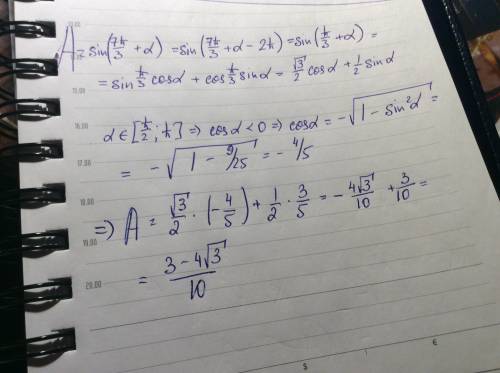 A = sin(7π/3 + α) = sin(7π/3 + α - 2π) = sin(π/3 + α) =
= sin π/3 cosα + cos π/3 sinα = √3/2 cosα + 1/2 sinα
α ∈ [π/2; π] ⇒ cosα < 0 ⇒ cosα = -√(1 - sin²α) =
= -√(1 - 9/25) = -4/5
⇒ A = √3/2 · (-4/5) + 1/2 · 3/5 = -4√3/10 + 3/10 =
= (3 - 4√3)/10
15.00
16.00
17.00
18.00
19.00
20.00
$ €